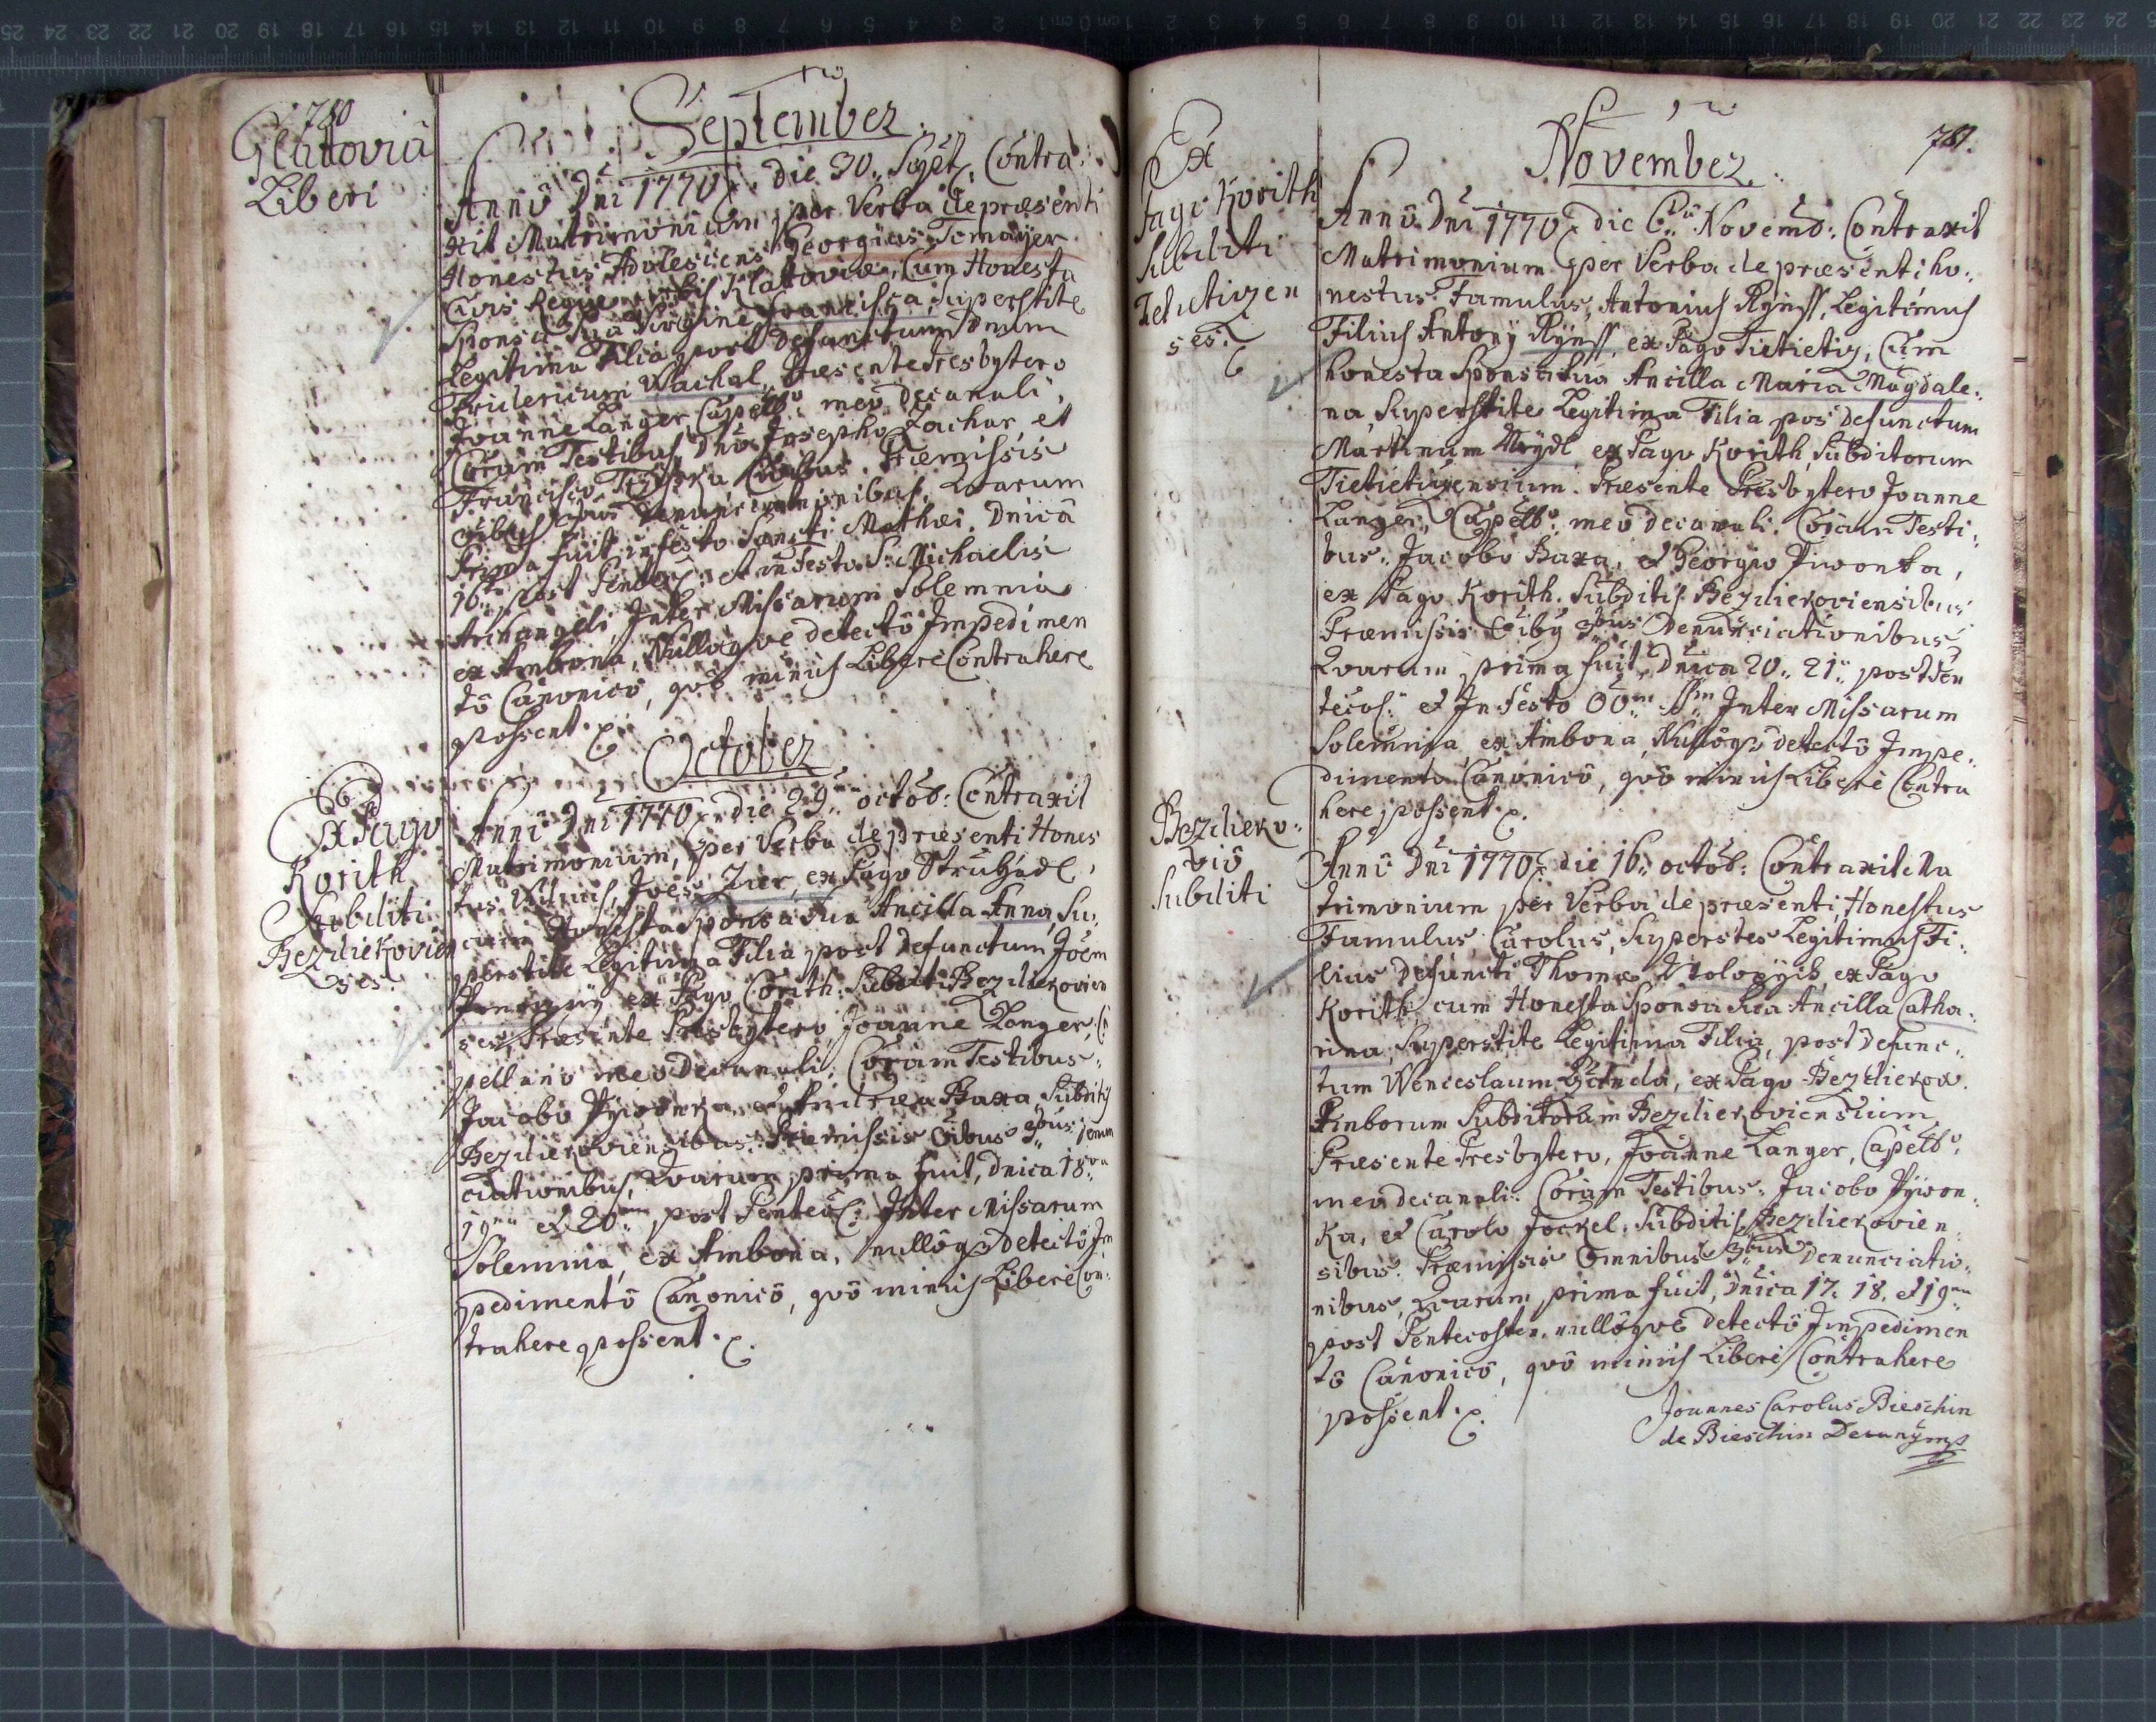 780
Glattoviâ
Liberi
September
Annô Dni 1770 die 30. Sept. Contra
xit Matrimonium per Verba de præsenti
Honestus Adolescens Georgius Temayer
Civis Regiæ Urbis Klattoviæ, Cum Honesta
Sponsa Sua Virgine Francisca, Superstite
Legitima Filia post Defunctum Dnum
Fridericum Wachal, Præsente Presbytero
Joanne Langer Capellô meô Decanali,
Coram Testibus, Dnô Josepho Zachar et
Francisco Civibus. Præmissis
Denunciationibus, Quarum
Prima fuit in festo Sancti Mathæi. Dnicâ
16ta post Pentec: et in Festo S: Michaelis
Archangeli, Inter Missarum Solemnia
ex Ambona, Nullôqve detectô Impedimen
tô Canonicô, qvô minus Liberè Contrahere
possent.
October
Ex Pago
Korith
Subditi
Bezdiekovien
ses.
Annô Dni 1770 die 29. octob: Contraxit
Matrimonium, per Verba de præsenti Hones
tus Viduus, Joës Zier, ex Pago Struhadl,
cum Honesta Sponsa Sua Ancilla Anna, Su
perstite Legitima Filia post defunctum Joëm
ex Pago Corith. Subdit: Bezdiekovien
ses, Præsente Presbytero, Joanne Langer, Ca
pellano meo Decanali: Coram Testibus:
Jacobo Pywonka, et Andrea Baxa, Subditis
Bezdiekoviensibus. Præmissis Oibus 3bus Denun
ciationibus, Quarum prima fuit, Dnica 18va
19na et 20ma post Pentec: Inter Missarum
Solemnia, ex Ambona, nullôq detectô Im
pedimentô Canonicô, qvô minus Liberè Con
trahere possent.
781.
Ex
Pago Korith
Subditi
Tetietizen
ses.
November
Annô Dni 1770 die 6. Novemb: Contraxit
Matrimonium per Verba de præsenti ho
nestus Famulus, Antonius Rÿnss, Legitimus
Filius Antonÿ Rÿnss, ex Pago Tietietiz, Cum
honesta Sponsa Sua Ancilla Maria Magdale
na, Superstite Legitima Filia pos Defunctum
Martinum ex Pago Korith, Subditorum
Tietietizensium. Præsente Presbytero Joanne
Langer, Capellô meô decanali. Coram Testi
bus: Jacobo Baxa, et Georgio Piwonka,
ex Pago Korith. Subditis Bezdiekoviensibus
Præmissis Oibus 3bus Denunciationibus,
Quarum prima fuit, Dnica 20. 21. post Pen
tecos: et In Festo OOm SSm Inter Missarum
Solemnia ex Ambona, Nullôq detectô Impe
dimentô Canonicô, qvô minus Liberè Contra
here possent.
Bezdieko
viô
Subditi
Annô Dni 1770 die 16. octob: Contraxit Ma
trimonium per Verba de præsenti, Honestus
Famulus, Carolus, Superstes Legitimus Fi
lius Defuncti Thomæ ex Pago
Korith, cum Honesta Sponsa Sua Ancilla Catha
rina, Superstite Legitima Filia, post Defunc
tum Wenceslaum ex Pago Bezdiekov.
Amborum Subditorum Bezdiekoviensium
Præsente Presbytero, Joanne Langer, Capellô
meo decanali: Coram Testibus: Jacobo Pÿwon
ka, et Carolo Jockel. Subditis Bezdiekovien
sibus. Præmissis Omnibus 3bus Denunciatio
nibus, Quarum prima fuit, Dnica 17. 18. et 19na
post Pentecosten, nullôqve detectô Impedimen
tô Canonicô, qvô minus Liberè Contrahere
possent.
Joannes Carolus Bieschin
de Bieschin Decanus